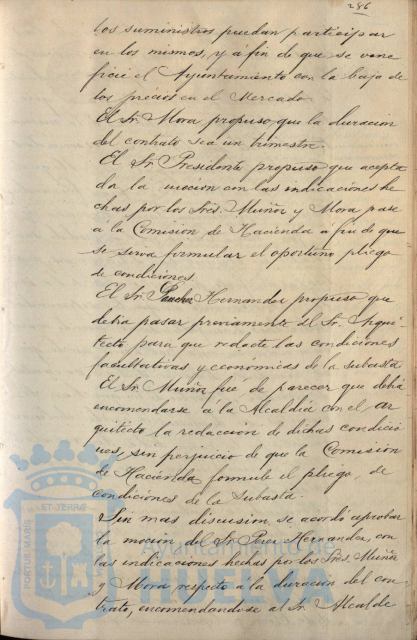 286
los suministros puedan participar
en los mismos, y á fin de que se vene
ficie el Ayuntamiento con la baja de
los precios en el Mercado.
El Sr. Mora propuso que la duracion
del contrato sea un trimestre.
El Sr. Presidente propuso que acepta
da la mocion con las indicaciones he
chas por los Sres. Muñoz y Mora pase
a la Comision de Hacienda a fin de que
se sirva formular el oportuno pliego
de condiciones.
El Sr. Sanchez Hernandez propuso que
debia pasar previamente al Sr. Arqui
tecto para que redacte las condiciones
facultativas y económicas de la subasta.
El Sr. Muñoz fué de parecer que debia
encomendarse á la Alcaldia con el ar
quitecto la redaccion de dichas condicio
nes, sin perjuicio de que la Comision
de Hacienda formule el pliego de
condiciones de la Subasta.
Sin mas discusion se acordó aprobar
la mocion del Sr. Perez Hernandez, con
las indicaciones hechas por los Sres. Muñoz
y Mora respecto á la duracion del con
trato, encomendandose al Sr. Alcalde
PORTUS MARIS
ET TERRÆ
Ayuntamiento de
HUELVA